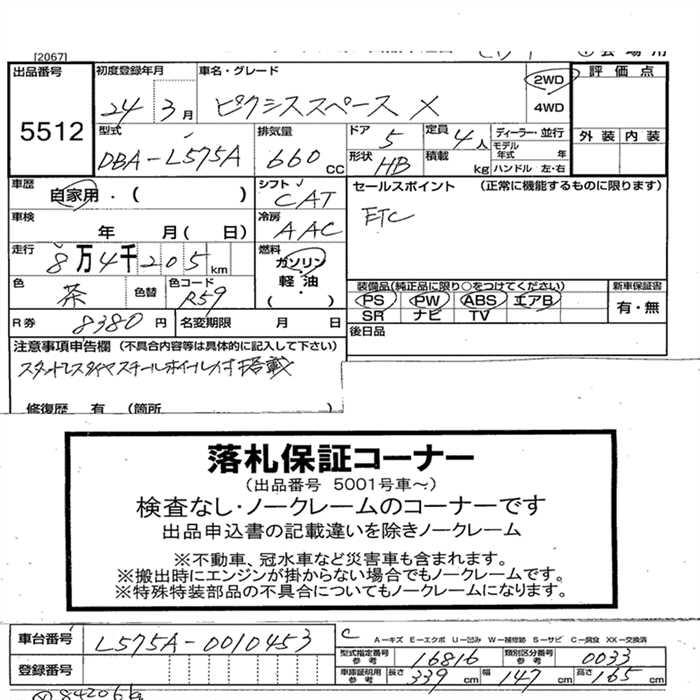 [2067]
出品番号 初度登録年月 車名・グレード 2WD 評価点
5512 24 3月 ピクシススペース X 4WD
型式 排気量 ドア 定員 ディーラー・並行 外装 内装
DBA-L575A 660 CC 5 4人 モデル年式 年
形状 HB 積載 kg ハンドル 左・右
車歴 自家用・( ) シフト CAT セールスポイント (正常に機能するものに限ります)
車検 年 月( 日) 冷房 AAC ETC
走行 8万4千205km 燃料 ガソリン
軽油
( ・ )
色 茶 色替 色コード R59 装備品(純正品に限り○をつけてください) 新車保証書
PS PW ABS エアB 有・無
SR ナビ TV
R券 8380円 名変期限 月 日 後日品
注意事項申告欄 (不具合内容等は具体的に記入して下さい)
スタットレスタイヤスチールホイール付搭載
修復歴 有 (箇所 )
落札保証コーナー
(出品番号 5001号車～)
検査なし・ノークレームのコーナーです
出品申込書の記載違いを除きノークレーム
※不動車、冠水車など災害車も含まれます。
※搬出時にエンジンが掛からない場合でもノークレームです。
※特殊特装部品の不具合についてもノークレームになります。
車台番号 L575A-0010453 C A-キズ E-エクボ U-凹み W-補修跡 S-サビ C-腐食 XX-交換済
型式指定番号 参考 16816 類別区分番号 参考 0033
登録番号 車庫証明用 参考 長さ 339 cm 幅 147 cm 高さ 165 cm